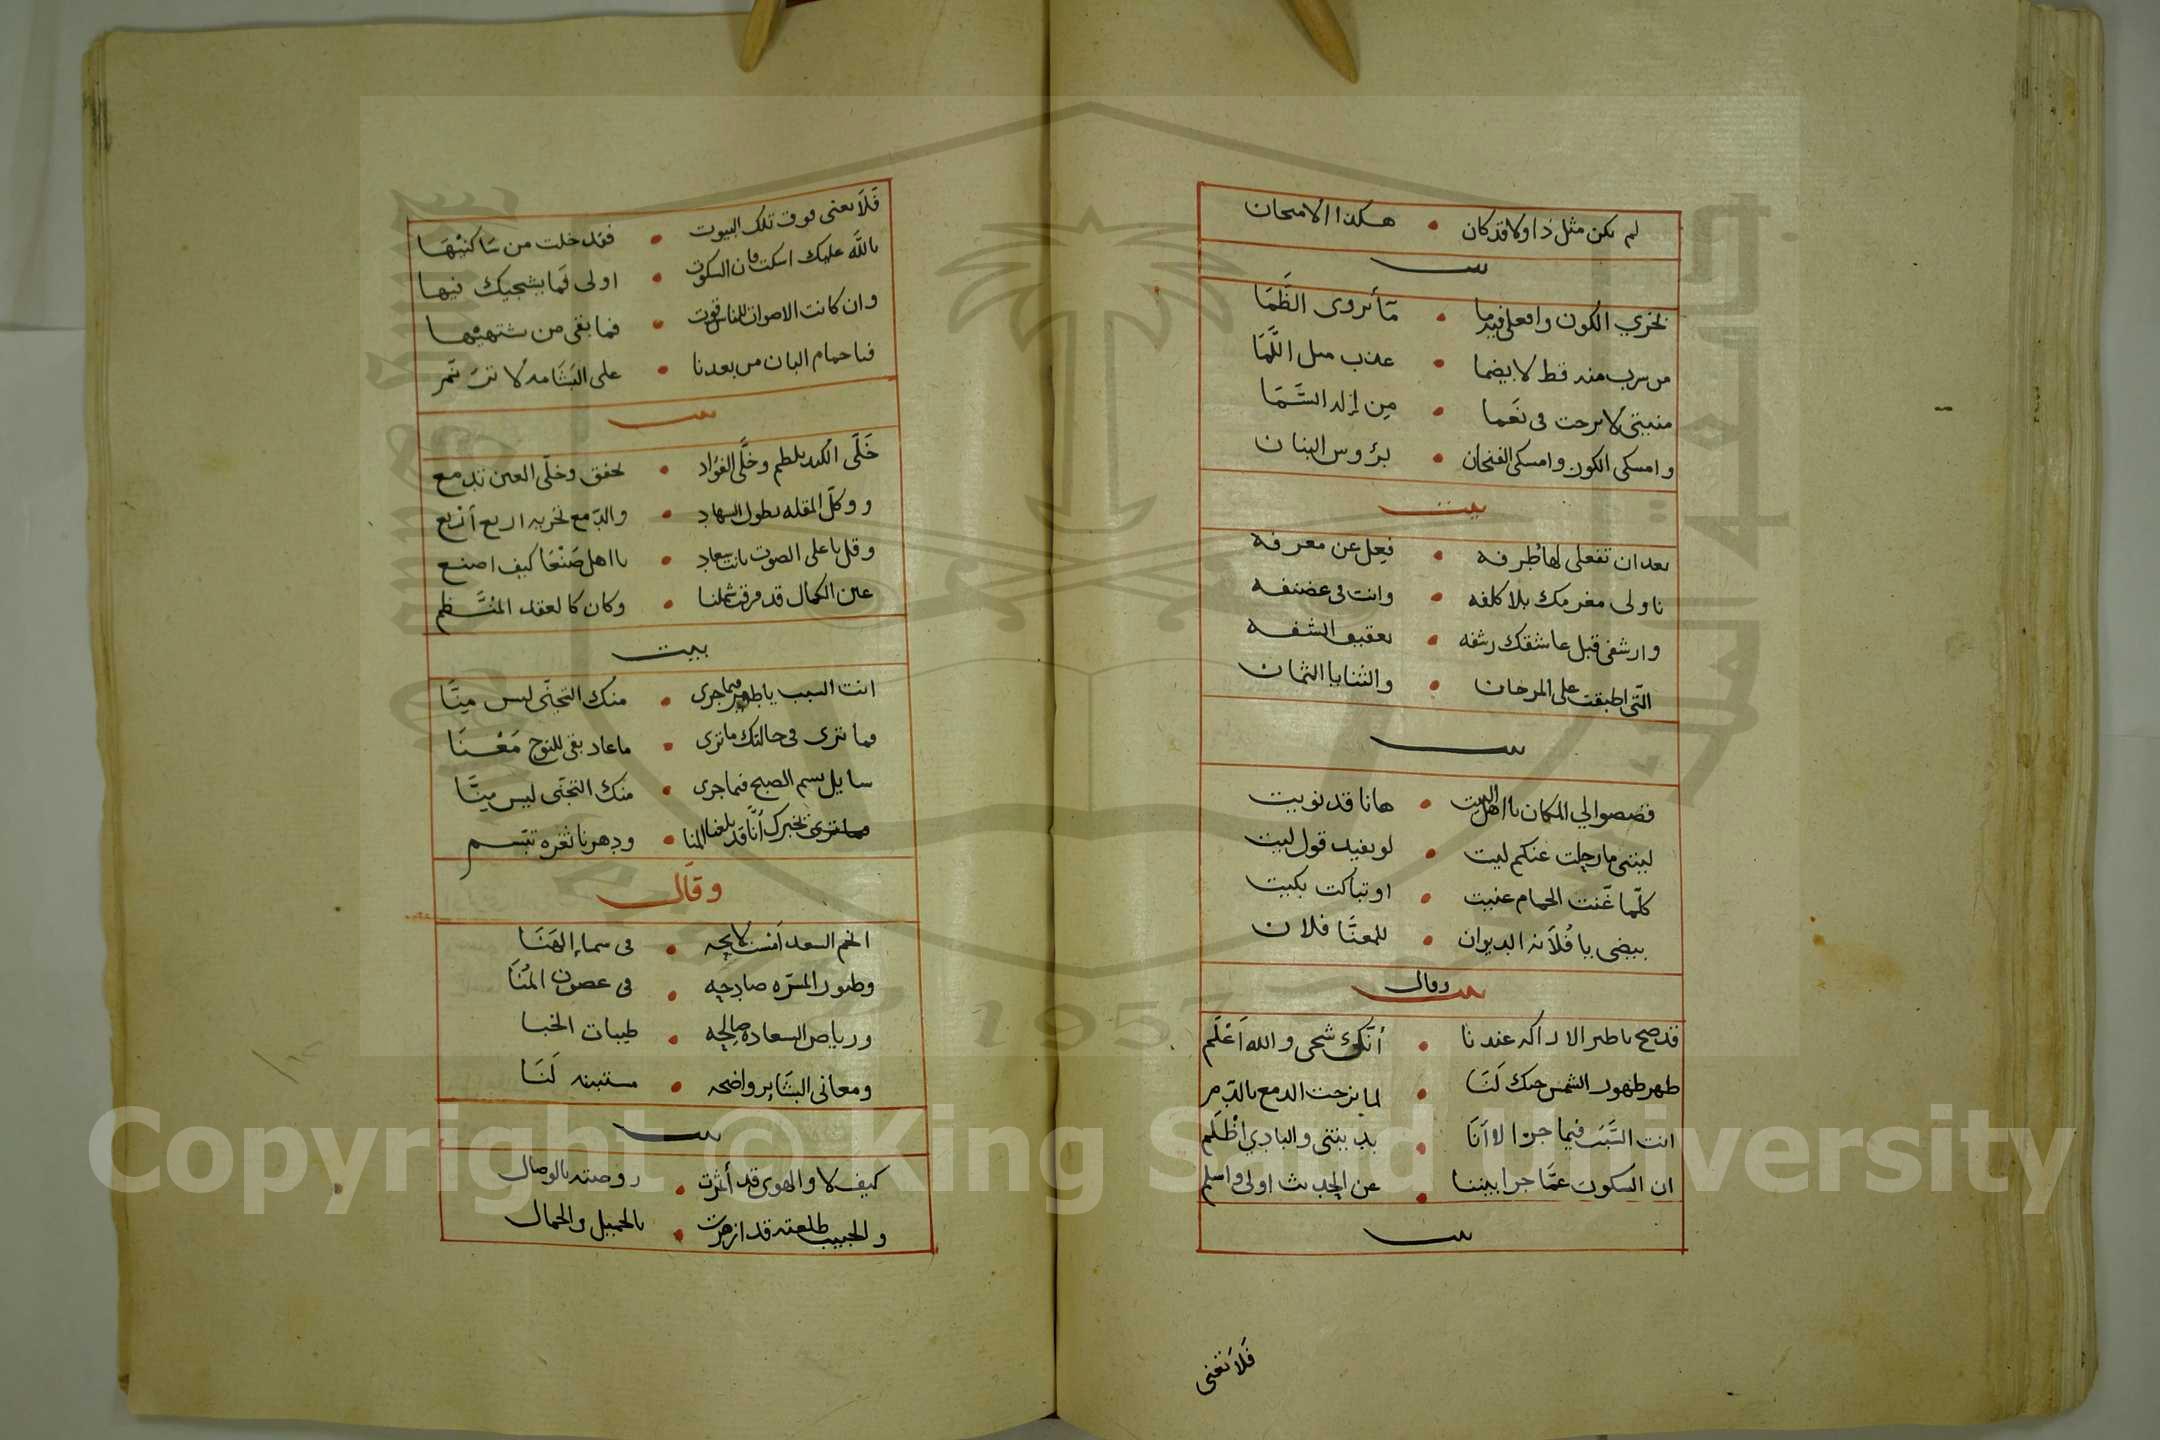 لم يكن مثل ذا ولا قد كان • هكذا الامتحان
بيت
نخزي الكون وافعلي فيه ما • ما يروى الظَّمَا
من شرب منه قط لا يضما • عذب مثل اللَّمَا
منيتي لا برحت في نعَما • مِن إله السَّمَا
وامسكي الكون وامسكي الفنجان • برؤوس البنان
بيت
بعد ان تفعلى لها طرفه • فِعِل عن معرفه
ناولى مغرمك بلا كلفه • وانت فى
وارشفى قبل عاشقك رشفه • بعقيق الشفه
الّتى اطبقت على المرجان • والثنايا الثمان
بيت
فضصوا لي المكان يا اهل البيت • هانا قد نويت
ليتنى ما رحلت عنكم ليت • لو يفيد قول ليت
كلّما غّنت الحمام غنيت • او تباكت بكيت
بيضى يا فُلاَنه الديوان • للمعنَّا فلان
وقال
بيت
قد صح يا طير الاراكه عندنا • أنّك شجى والله اَعْلَم
ظهر ظهور الشمس حبك لَنَا • لما مزجت الدمع بالدّم
انت السَّبَب فيما جرا لا اَنَا • بديتنى والبادي اظْلَم
ان السكوت عمَّا جرا بيننا • عن الحديث اولى واسلم
بيت
فَلاَ تغنى
فَلاَ تغنى فوق تلك البيوت • فقد خلت من سَاكنيْهَا
بالله عليك اسكت فان السكوت • اولى فَما يشجيك فيها
وان كانت الاصوات للناس قوت • فما بقى من يشتهيْها
فيا حمام البان من بعدنا • على البَشَامه لا
بيت
خَلَّى الكبد يلطم وخلَّى الفؤاد • يخفق وخلّى العين تدمع
ووكّل المقله بطول السهاد • والدّمع تخربه اربع أرْبع
وقل باعلى الصوت بانت سعاد • يا اهل صَنْعَا كيف اصنع
عين الكمال قد فرقت شملنا • وكان كالعقد المُنَّظم
بيت
انت السبب يا طير فيما جرى • منك التجنّى ليس مِنَّا
فما ترى فى حالتك ما ترى • ما عاد بقى للنوح مَعْنَا
سايل نسيم الصبح فيما جرى • منك التجنّى ليس مِنَّا
نخبرك أنَّا قد بلغنا المنا • ودهرنا ثغره تبّسم
وقال
انجم السعد اَمْست لايحه • فى سماء الهَنَا
وطيور المسرّه صادحه • فى غصون المُنَا
ورياض السعاده صالحه • طيبات الجنا
ومعانى البشَاير واضحه • مستبينه لَنَا
بيت
كيف لا والهوى قد أثمرت • روضته بالوصال
والحبيب طلعته قد ازهرت • بالجميل والجمال
Copyright © King Saud University
1957